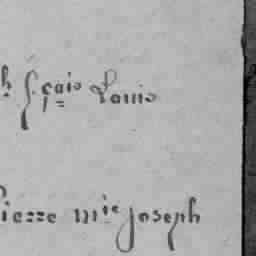 h fçais Louis
Pierre mie joseph